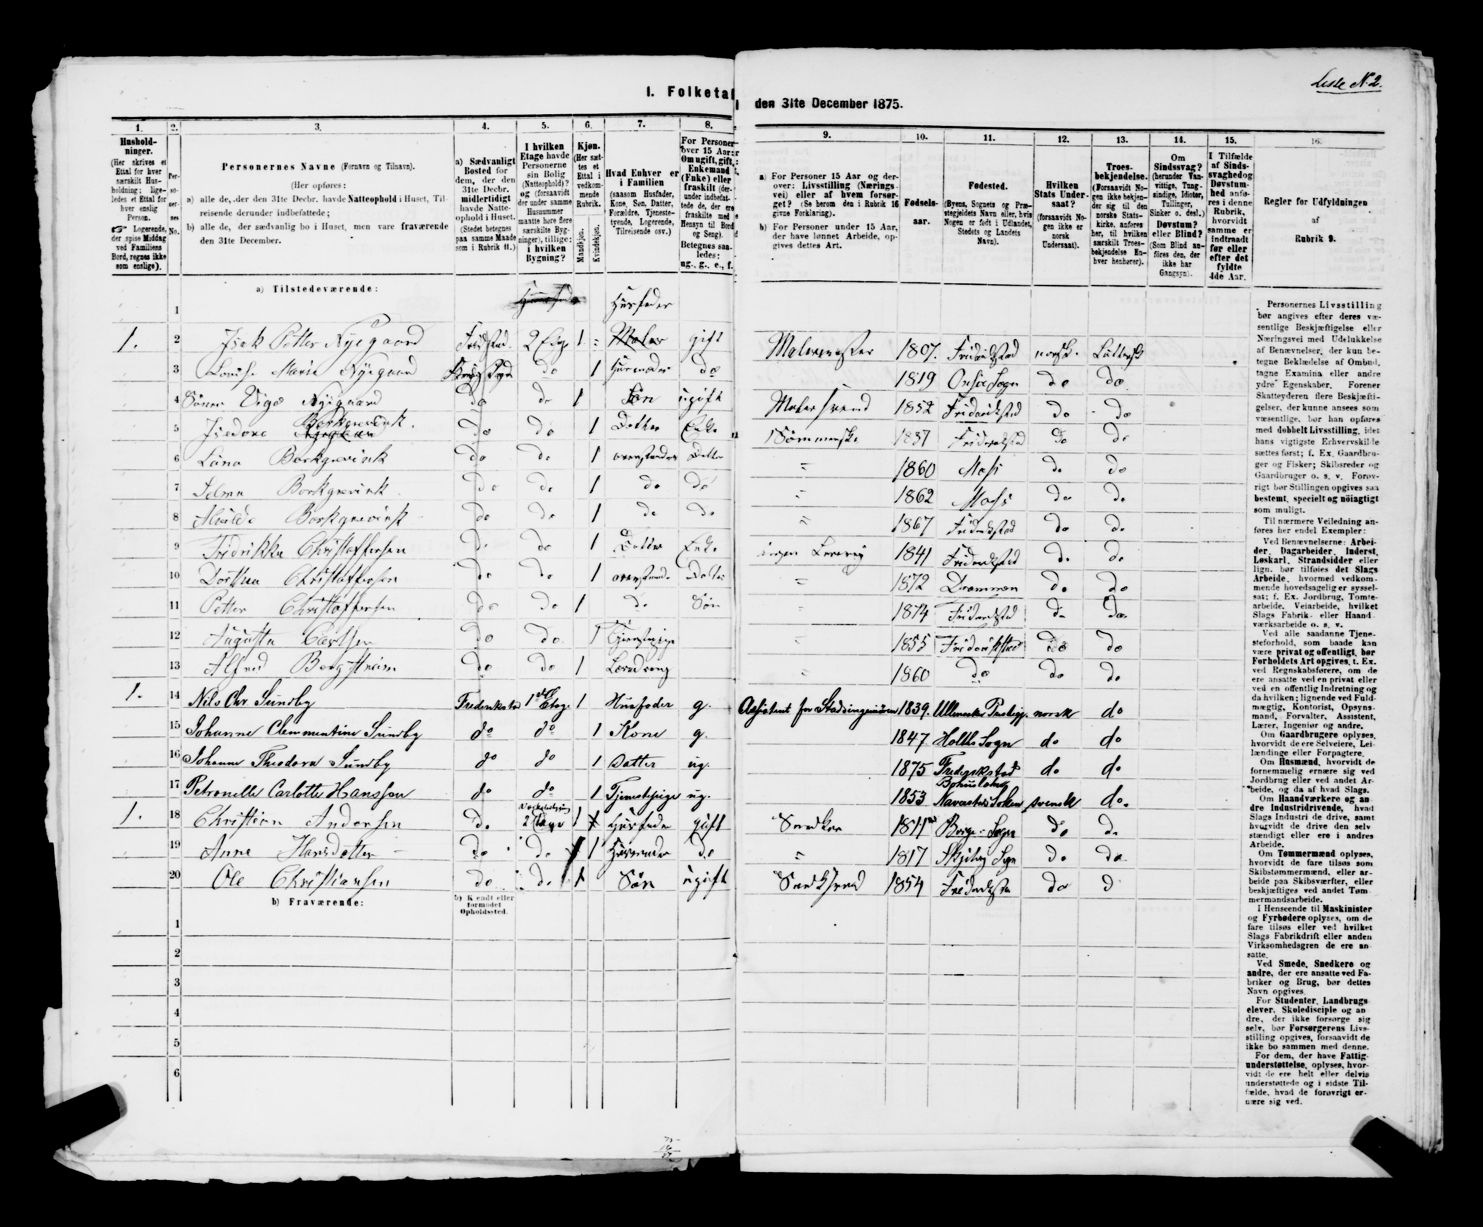 Liste No 2.
I. Folketal den 31te December 1875.
1. Husholdninger. (Her skrives et Ettal for hver særskilt Husholdning; ligeledes et Ettal for hver enslig Person. Logerende, der spise Middag ved Familiens Bord, regnes ikke som enslige).
2. Personernes No.
3. Personernes Navne (Fornavn og Tilnavn). (Her opføres: a) alle de, der den 31te Decbr. havde Natteophold i Huset, Tilreisende derunder indbefattede; b) alle de, der sædvanlig bo i Huset, men vare fraværende den 31te December.
4. a) Sædvanligt Bosted for dem, der den 31te Decbr. midlertidigt havde Natteophold i Huset. (Stedet betegnes paa samme Maade som i Rubrik 11.)
5. I hvilken Etage havde Personerne sin Bolig (Natteophold)? og (forsaavidt der under samme Husnummer maatte høre flere særskilte Bygninger), tillige: i hvilken Bygning?
6. Kjøn. (Her sættes et Ettal i vedkommende Rubrik. Mandkjøn. Kvindekjøn.
7. Hvad Enhver er i Familien (saasom Husfader, Kone, Søn, Datter, Forældre, Tjenestetyende, Logerende, Tilreisende osv.)
8. For Personer over 15 Aar: Om ugift, gift, Enkemand (Enke) eller fraskilt Betegnes saaledes: ug., g., e., f.
9. a) For Personer 15 Aar og derover: Livsstilling (Næringsvei) eller af hvem forsørget? (Se herom den i Rubrik 16 givne Forklaring). b) For Personer under 15 Aar, der have lønnet Arbeide, opgives dettes Art.
10. Fødselsaar.
11. Fødested. (Byens, Sognets og Præstegjeldets Navn eller, hvis Nogen er født i Udlandet, Stedets og Landets Navn).
12. Hvilken Stats Undersaat? (forsaavidt Nogen ikke er norsk Undersaat).
13. Troesbekjendelse. (Forsaavidt Nogen ikke bekjender sig til den norske Statskirke, anføres her, til hvilken særskilt Troesbekjendelse Enhver henhører).
14. Om Sindssvag? (herunder Vanvittige, Tungsindige, Idioter, Tullinger, Sinker o. desl.) Døvstum? eller Blind? (Som Blind anføres den, der ikke har Gangsyn).
15. I Tilfælde af Sindssvaghed og Døvstumhed anføres i denne Rubrik, hvorvidt samme er indtraadt før eller efter det fyldte 4de Aar.
16. Regler for Udfyldningen af Rubrik 9.
a) Tilstedeværende:
1 Husfader
1. 2 Isak Petter Nyegaard Fridstad. 2 Etag. 1 Maler gift Malermester 1807. Fridrikstad norsk. Luttersk
3 Lovise Marie Nyegaard do 1 Husmoder do 1819 Onsøe Sogn do do
4 Sønnen Vigo Nyegaard do do 1 Søn ugift Malersvend 1852 Fridrikstad do do
5 Isidora Borkgrevink. do do 1 Dotter Enke Sømmerske 1837 Fridrikstad do do
6 Lüna Borkgrevink do do 1 Dotter 1860 Mosse do do
7 Selma Borkgrevink. do do 1 do do 1862 Mosse do do
8 Hulda Borkgrevink do do 1 do do 1867 Fridrikstad do do
9 Fredrikka Christoffersen do do 1 Dotter Enke ingen Leververj 1841 Fridrikstad do do
10 Dorthea Christoffersen do do 1 Dotter 1872 Drammen do do
11 Petter Christoffersen do do 1 do Søn 1874 Fridrikstad do do
12 Augusta Carlsen do do. 1 1855 Fridrikstad do do
13 Alfred Bergstrøm do do 1 Læredreng 1860 do do do
1. 14 Nils Chr. Sundby Frederikstad 1ste Etag. 1 Husfader g. Assistent for Stadsingeniøren 1839. Ullensaker Prestegj. norsk do
15 Johanne Clemmentine Sundby do do 1 Kone g. 1847 Holths Sogn do do
16 Johanne Theodora Sundby do do 1 Datter ug. 1875 Frederikstad do do
17 Petronelle Carlotte Hanssen do do 1 Tjenestepige ug. 1853 Bohuslehn Naverstads Soken svensk do.
1. 18 Christian Andersen do. 2 Etage 1 Husfader gift Snedker 1811 Borge Sogn do do
19 Anne Hansdatter do do 1 Husmoder do 1817 Skjeberg Sogn do do
20 Ole Christiansen do do 1 Søn ugift Snedkersvend 1854 Fridrikstad do do
b) Fraværende:
b) Kjendt eller formodet Opholdssted.
1
2
3
4
5
6
Personernes Livsstilling bør angives efter deres væsentlige Beskjæftigelse eller Næringsvei med Udelukkelse af Benævnelser, der kun betegne Beklædelse af Ombud, tagne Examina eller andre ydre Egenskaber. Forener Skatteyderen flere Beskjæftigelser, der kunne ansees som væsentlige, bør han opføres med dobbelt Livsstilling, idet hans vigtigste Erhvervskilde sættes først; f. Ex. Gaardbruger og Fisker; Skibsreder og Gaardbruger o. s. v. Forøvrigt bør Stillingen opgives saa bestemt, specielt og nøiagtigt som muligt.
Til nærmere Veiledning anføres her endel Exempler:
Ved Benævnelserne: Arbeider, Dagarbeider, Inderst, Løskarl, Strandsidder eller lign. bør tilføies det Slags Arbeide, hvormed vedkommende hovedsagelig er sysselsat; f. Ex. Jordbrug, Tomtearbeide, Veiarbeide, hvilket Slags Fabrik- eller Haandværksarbeide o. s. v.
Ved alle saadanne Tjenesteforhold, som baade kan være privat og offentligt, bør Forholdets Art opgives, t. Ex. ved Regnskabsførere, om de ere ansatte ved en privat eller ved en offentlig Indretning og da hvilken; lignende ved Fuldmægtig, Kontorist, Opsynsmand, Forvalter, Assistent, Lærer, Ingeniør og andre.
Om Gaardbrugere oplyses, hvorvidt de ere Selveiere, Leilændinge eller Forpagtere.
Om Husmænd, hvorvidt de fornemmelig ernære sig ved Jordbrug eller ved andet Arbeide, og da af hvad Slags.
Om Haandværkere og andre Industridrivende, hvad Slags Industri de drive, samt hvorvidt de drive den selvstændigt eller ere i andres Arbeide.
Om Tømmermænd oplyses, hvorvidt de fare tilsøs som Skibstømmermænd, eller arbeide paa Skibsværfter, eller beskjæftiges ved andet Tømmermandsarbeide.
I Henseende til Maskinister og Fyrbødere oplyses, om de fare tilsøs eller ved hvilket Slags Fabrikdrift eller anden Virksomhedsgren de ere ansatte.
Ved Smede, Snedkere og andre, der ere ansatte ved Fabriker og Brug, bør dettes Navn opgives.
For Studenter, Landbrugselever, Skoledisciple og andre, der ikke forsørge sig selv, bør Forsørgerens Livsstilling opgives, forsaavidt de ikke bo sammen med denne.
For dem, der have Fattigunderstøttelse, oplyses, hvorvidt de ere helt eller delvis understøttede og i sidste Tilfælde, hvad de forøvrigt ernære sig ved.